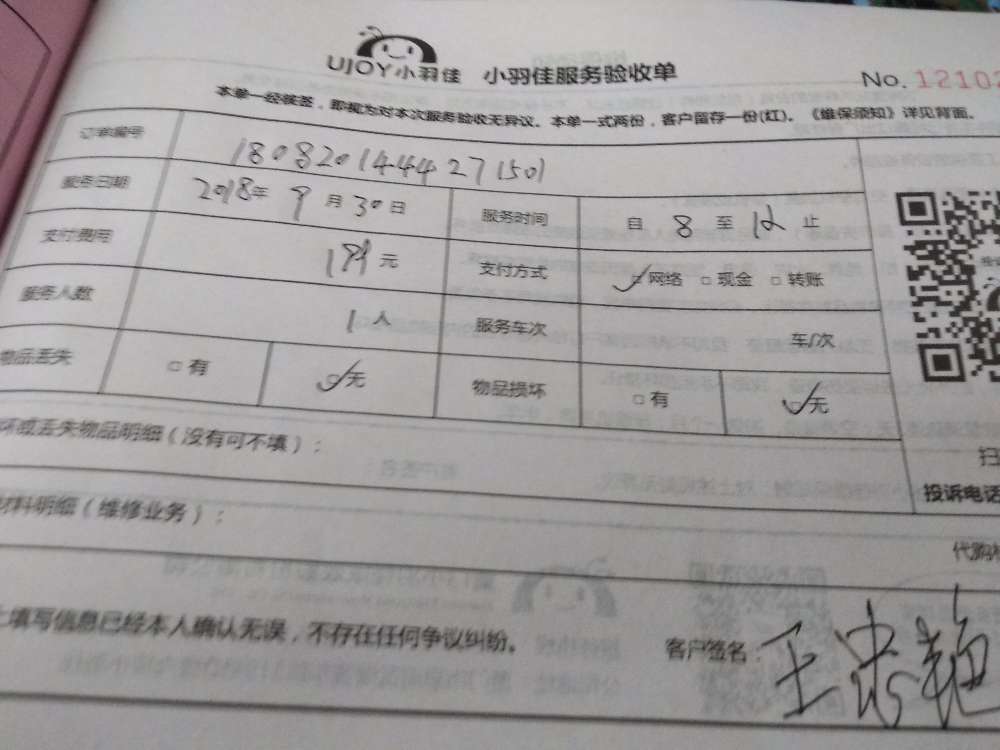 UJOY小羽佳 小羽佳服务验收单 No. 12102
本单一经被签，即视为对本次服务验收无异议。本单一式两份，客户留存一份(红)。《维保须知》详见背面。
订单编号 1808201444271501
服务日期 2018年 9 月 30 日 服务时间 自 8 至 12 止
支付费用 元 支付方式 网络 □ 现金 □ 转账
服务人数 1 人 服务车次 车/次
物品丢失 □ 有 无 物品损坏 □ 有 无
坏或丢失物品明细（没有可不填）：
扫
投诉电话
材料明细（维修业务）：
代购材
上填写信息已经本人确认无误，不存在任何争议纠纷。
客户签名： 王忠艳